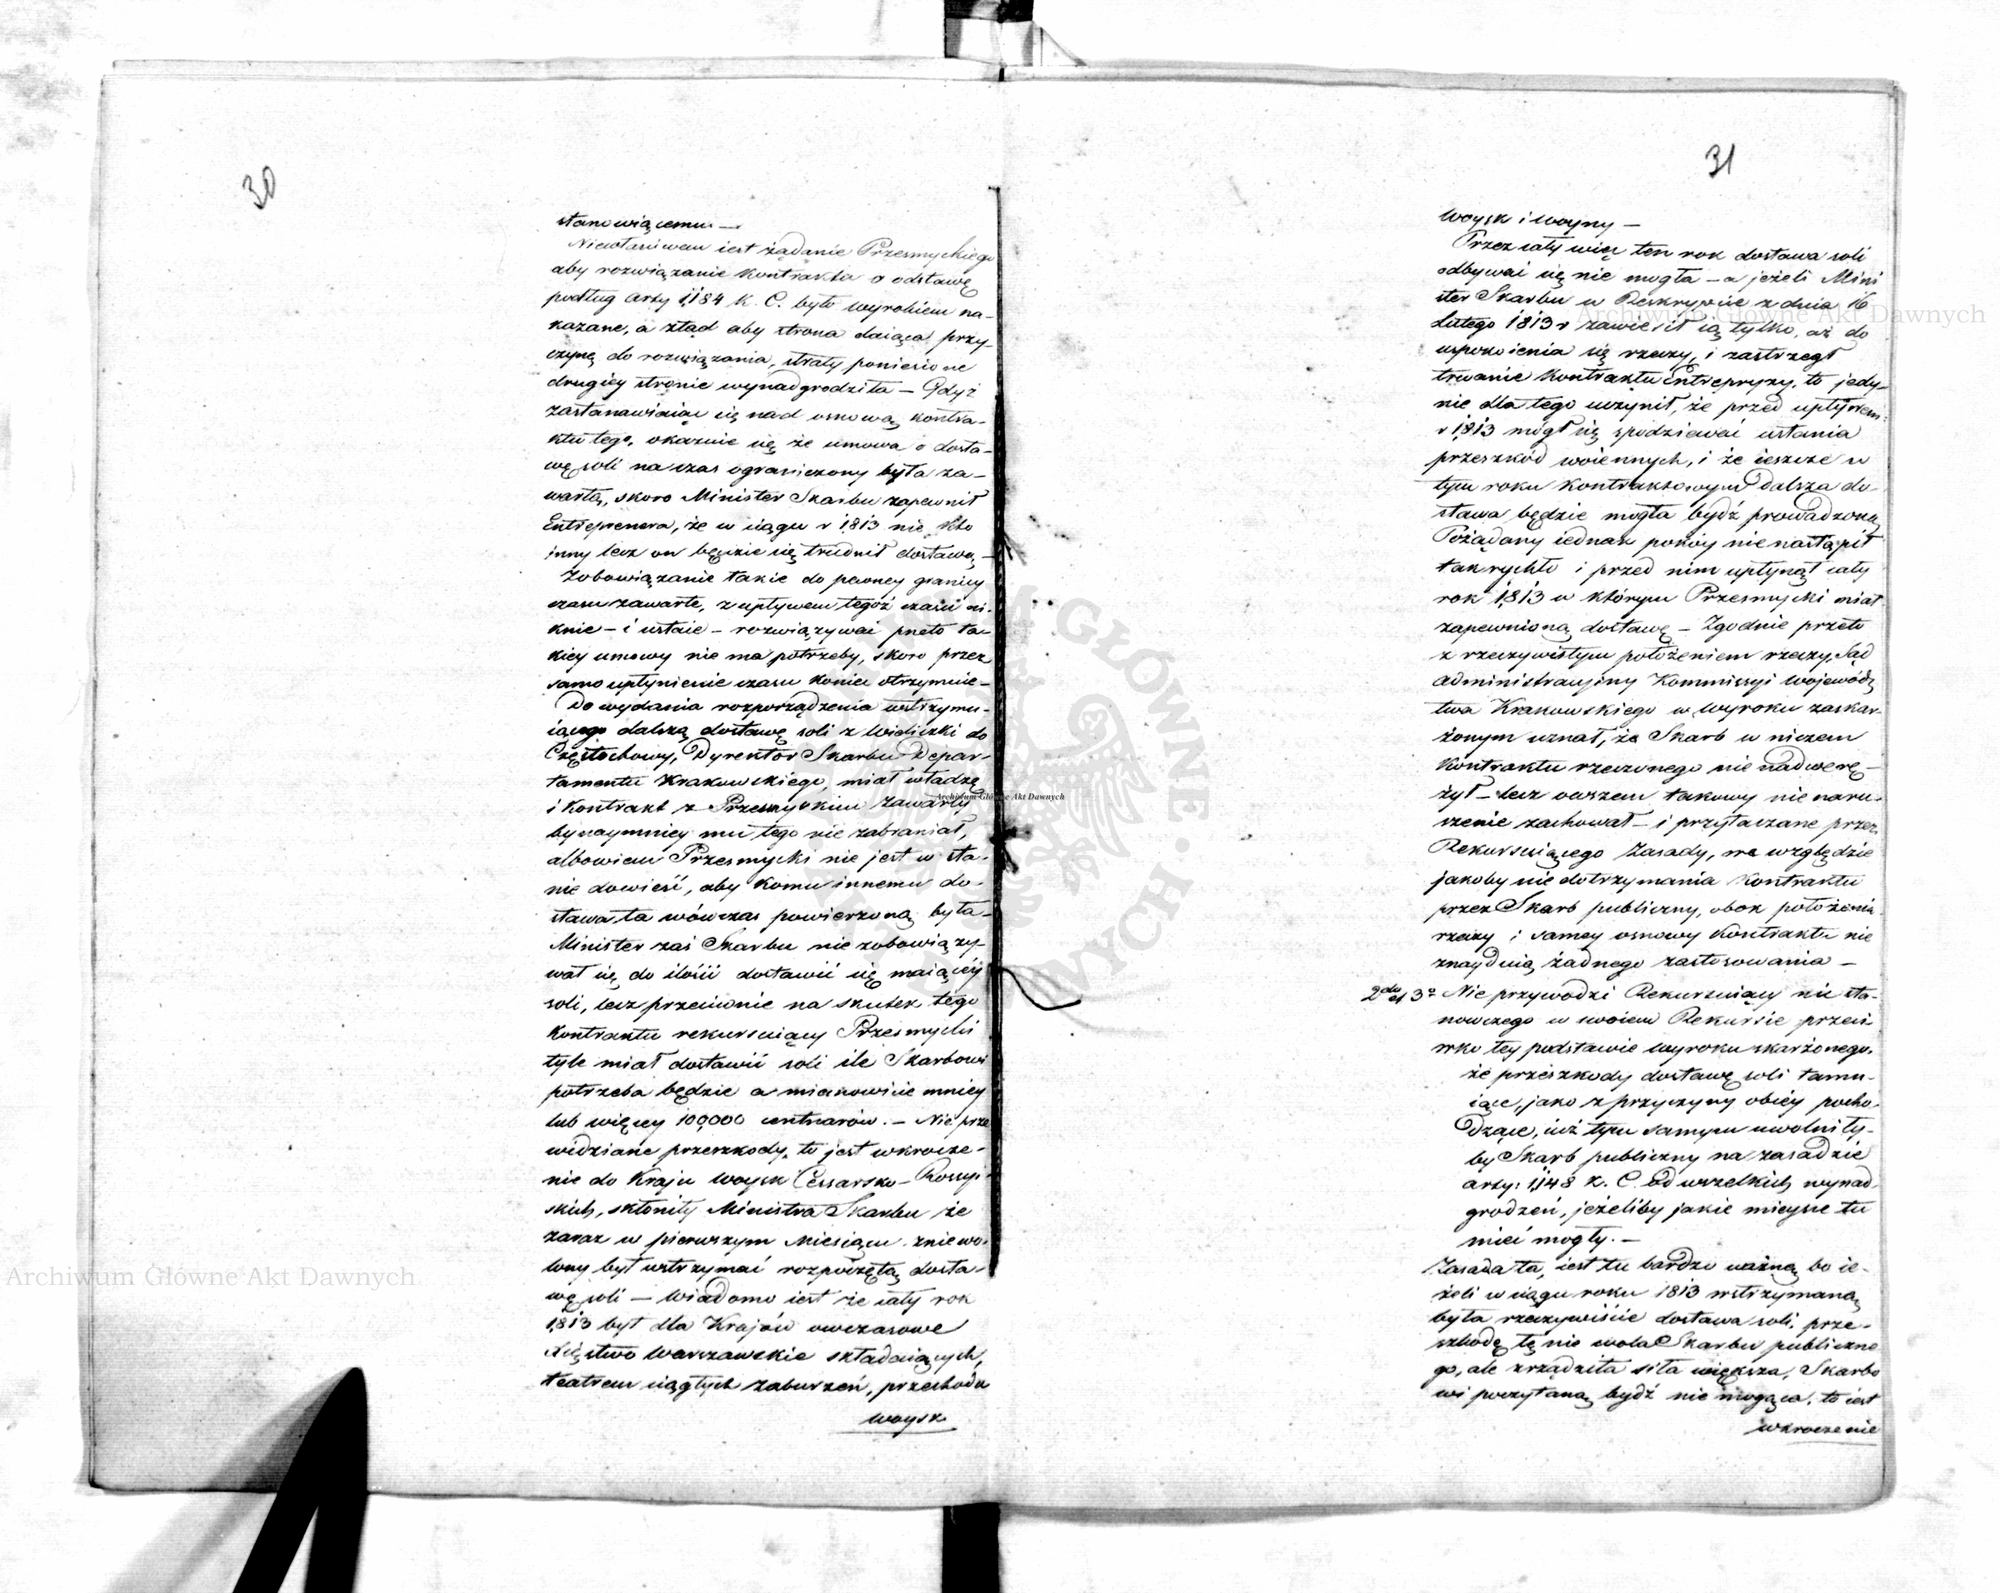 30
stanowiącemu —
Niewłasciwem iest żądanie Przesmyckiego
aby rozwiązanie Kontraktu o odstawę
podług Arty 1,184 K. C. było wyrokiem na-
kazane, a ztąd aby strona daiąca przy-
czynę do rozwiązania, straty poniesione
drugiey stronie wynadgrodziła — Gdyż
zastanawiaiąc się nad osnową kontra-
ktu tego, okazuie się że umowa o dosta-
wę soli na czas ograniczony była za-
wartą, skoro Minister Skarbu zapewnił
Entreprenera, że w ciągu r 1813 nie kto
inny lecz on będzie się trudnił dostawą —
Zobowiązanie takie do pewney granicy
czasu zawarte, z upływem tegoż czasu ni-
knie — i ustaie — rozwiązywać przeto ta-
kiey umowy nie ma potrzeby, skoro przez
samo upłynienie czasu koniec otrzymuie —
Do wydania rozporządzenia wstrzymu-
iącego dalszą dostawę soli z Wieliczki do
Częstochowy, Dyrektor Skarbu Depar-
tamentu Krakowskiego, miał władzę
i Kontrakt z Przesmyckim zawarty
bynaymniey mu tego nie zabraniał,
albowiem Przesmycki nie jest w sta-
nie dowieść, aby komu innemu do-
stawa ta wówczas powierzoną była —
Minister zaś Skarbu nie zobowiązy-
wał się do ilości dostawić się maiącéy
soli, lecz przeciwnie na skutek tego
Kontraktu rekursuiący Przesmycki
tyle miał dostawić soli ile Skarbowi
potrzeba będzie a mianowicie mniey
lub więcey 100,000 centnarów. — Nie prze
widziane przeszkody, to jest wkrocze-
nie do Kraju Woysk Cesarsko-Rossyi-
skich, skłoniły Ministra Skarbu że
zaraz w pierwszym Miesiącu zniewo-
lony był wstrzymać rozpoczętą dosta-
wę soli — Wiadomo iest że cały rok
1,813 był dla Krajów owczasowe
Xięstwo Warszawskie składaiących,
teatrem ciągłych zaburzeń, przechodu
Woysk
31
Woysk i Woyny —
Przez cały więc ten rok dostawa soli
odbywać się nie mogła — a jeżeli Mini
ster Skarbu w Reskrypcie z dnia 16
Lutego 1813 r zawiesił ią tylko, aż do
uspokoienia się rzeczy, i zastrzegł
trwanie Kontraktu Entrepryzy, to jedy-
nie dla tego uczynił, że przed upływem
r 1,813 mógł się spodziewać ustania
przeszkód woiennych, i że ieszcze w
tym roku Kontraktowym dalsza do-
stawa będzie mogła bydź prowadzoną
Pożądany iednak pokóy nie nastąpił
tak rychło i przed nim upłynął cały
rok 1,813 w którym Przesmycki miał
zapewnioną dostawę — Zgodnie przeto
z rzeczywistym położeniem rzeczy, Sąd
Administracyiny Kommissyi Wojewódz
twa Krakowskiego w wyroku zaskar-
żonym uznał, że Skarb w niczem
Kontraktu rzeczonego nie nadwerę-
żył — lecz owszem takowy nienaru-
szenie zachował — i przytaczane przez
Rekursuiącego Zasady, we względzie
jakoby nie dotrzymania Kontraktu
przez Skarb publiczny, obok położenia
rzeczy i samey osnowy Kontraktu nie
znayduią żadnego zastosowania —
2do et 3o Nie przywodzi Rekursuiący nic sta-
nowczego w swoiem Rekursie przeci-
wko tey podstawie wyroku skarżonego.
że przeszkody dostawę soli tamu-
iące, jako z przyczyny obcéy pocho-
dzące, iuż tym samym uwolniły-
by Skarb publiczny na zasadzie
arty: 1,148 K. C. od wszelkich wynad-
grodzeń, jeżeliby jakie mieysce tu
mieć mogły. —
Zasada ta, iest tu bardzo ważną, bo ie-
żeli w ciągu roku 1813 wstrzymaną
była rzeczywiście dostawa soli, prze-
szkodę tę nie wola Skarbu publiczne
go, ale zrządziła siła większa, Skarbo
wi poczytaną bydź nie mogąca, to iest
wkroczenie
Archiwum Główne Akt Dawnych
Archiwum Główne Akt Dawnych
Archiwum Główne Akt Dawnych